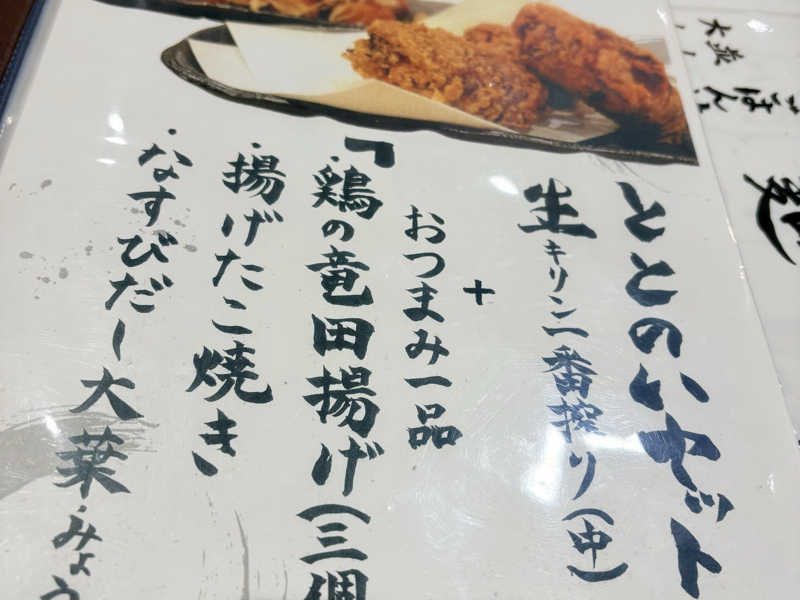 ととのいセット
生キリン一番搾り(中)
+
おつまみ一品
「・鶏の竜田揚げ(三個
・揚げたこ焼き
・なすびだー大葉・みょう
ごはん
大盛